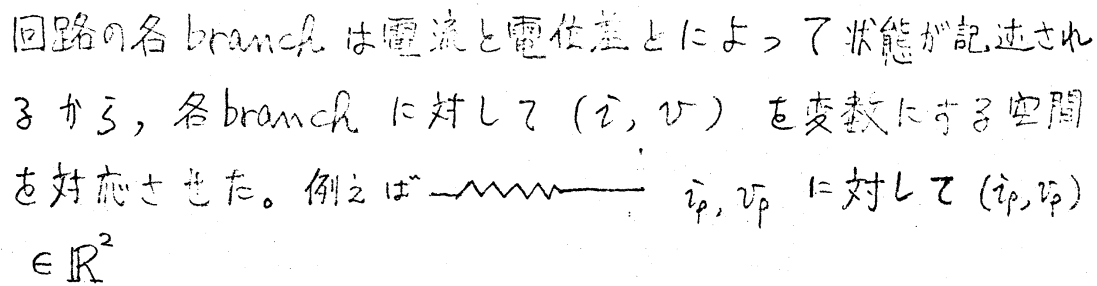 回路の各 branch は電流と電位差とによって状態が記述され
るから，各 branch に対して (i, v) を変数にする空間
を対応させた。例えば i_ρ, v_ρ に対して (i_ρ, v_ρ)
∈ ℝ²